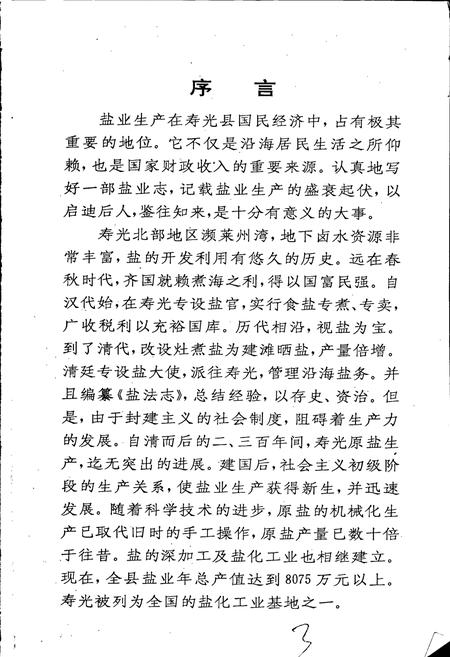 序 言
盐业生产在寿光县国民经济中，占有极其
重要的地位。它不仅是沿海居民生活之所仰
赖，也是国家财政收入的重要来源。认真地写
好一部盐业志，记载盐业生产的盛衰起伏，以
启迪后人，鉴往知来，是十分有意义的大事。
寿光北部地区濒莱州湾，地下卤水资源非
常丰富，盐的开发利用有悠久的历史。远在春
秋时代，齐国就赖煮海之利，得以国富民强。自
汉代始，在寿光专设盐官，实行食盐专煮、专卖，
广收税利以充裕国库。历代相沿，视盐为宝。
到了清代，改设灶煮盐为建滩晒盐，产量倍增。
清廷专设盐大使，派往寿光，管理沿海盐务。并
且编纂《盐法志》，总结经验，以存史、资治。但
是，由于封建主义的社会制度，阻碍着生产力
的发展。自清而后的二、三百年间，寿光原盐生
产，迄无突出的进展。建国后，社会主义初级阶
段的生产关系，使盐业生产获得新生，并迅速
发展。随着科学技术的进步，原盐的机械化生
产已取代旧时的手工操作，原盐产量已数十倍
于往昔。盐的深加工及盐化工业也相继建立。
现在，全县盐业年总产值达到8075万元以上。
寿光被列为全国的盐化工业基地之一。
3